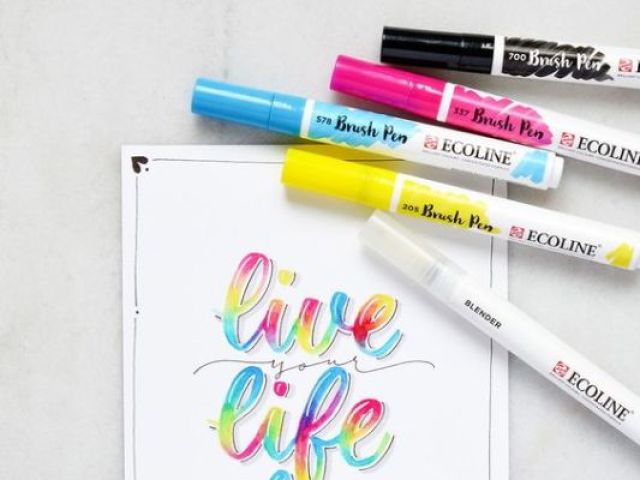 700 Brush Pen
337 Brush Pen
578 Brush Pen ECOLINE
205 Brush Pen ECOLINE
BLENDER ECOLINE
live
your
life